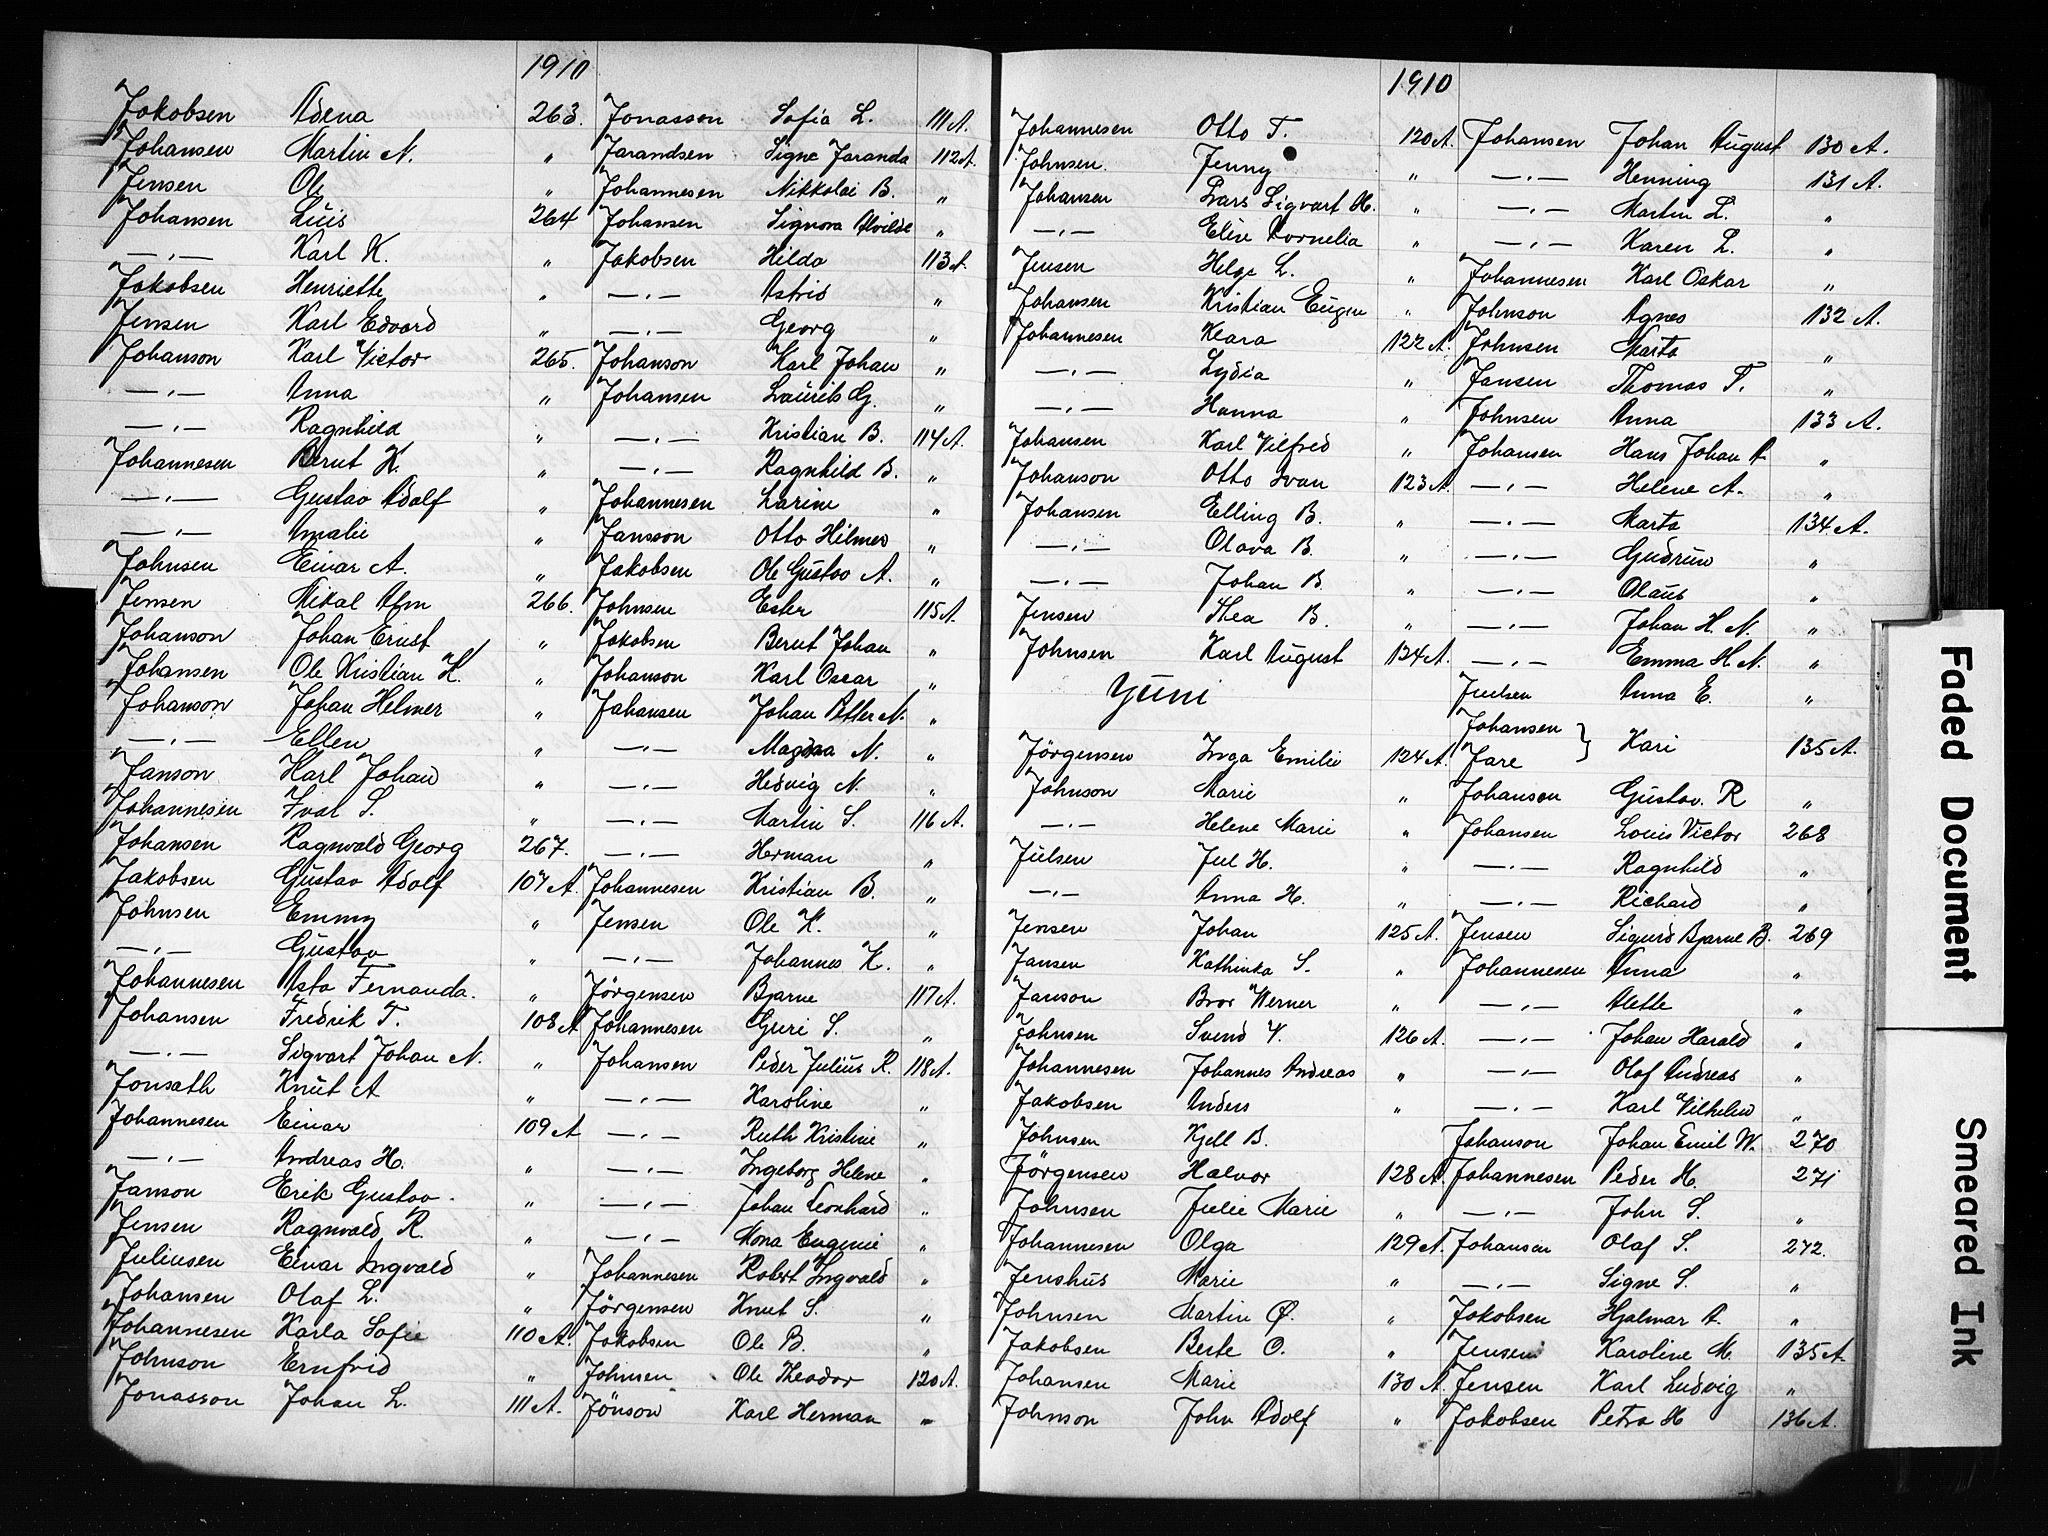 1910
Jakobsen Adena 263.
Johansen Martin N. "
Jensen Ole "
Johansen Luis 264
—"— Karl K. "
Jakobsen Henriette "
Jensen Karl Edvard "
Johanson Karl Victor 265.
—"— Anna "
—"— Ragnhild "
Johannesen Bernt K. "
—"— Gustav Adolf "
—"— Amalie "
Johnsen Einar A. "
Jensen Mikal Alm 266.
Johanson Johan Ernst "
Johansen Ole Kristian K. "
Johanson Johan Helmer "
—"— Ellen "
Janson Karl Johan "
Johannesen Ivar S. "
Johansen Ragnvald Georg 267.
Jakobsen Gustav Adolf 107 A.
Johnsen Emmy "
—"— Gustav "
Johannesen Asta Fernanda. "
Johansen Fredrik T. 108 A
—"— Sigvart Johan N. "
Jonsath Knut A "
Johannesen Einar 109 A
—"— Andreas H. "
Janson Erik Gustav. "
Jensen Ragnvald R. "
Juliusen Einar Ingvald "
Johansen Olaf L. "
Johannesen Karla Sofie 110 A.
Johnson Ernfrid "
Jonasson Johan L. 111 A.
Jonasson Sofia L. 111 A.
Jarandsen Signe Jaranda 112 A.
Johannesen Nikkolai B. "
Johansen Signora Alvilde "
Jakobsen Hilda 113 A.
—"— Astrid "
—"— Georg "
Johanson Karl Johan "
Johansen Laurits G. "
—"— Kristian B. 114 A.
—"— Ragnhild B. "
Johannesen Larine "
Jansson Otto Hilmer "
Jakobsen Ole Gustav A. "
Johnsen Ester 115 A.
Jakobsen Bernt Johan "
Johanson Karl Oscar "
Johansen Johan Petter N. "
—"— Magdaa N. "
—"— Hedvig N. "
—"— Martin S. 116 A.
—"— Herman "
Johannesen Kristian B. "
Jensen Ole K. "
—"— Johannes K. "
Jörgensen Bjarne 117 A.
Johannesen Guri S. "
Johansen Peder Julius R. 118 A.
—"— Karoline "
—"— Ruth Kristine "
—"— Ingeborg Helene "
—"— Johan Leonhard "
—"— Mona Eugenie "
Johannesen Robert Ingvald "
Jörgensen Knut S. "
Jakobsen Ole B. "
Johnsen Ole Theodor 120 A.
Jönson Karl Herman "
1910
Johannesen Otto T. 120 A.
Johnsen Jenny "
Johansen Lars Sigvart H. "
—"— Eline Kornelia "
Jensen Helge L. "
Johansen Kristian Eugen "
Johannesen Klara 122 A.
—"— Lydia "
—"— Hanna "
Johansen Karl Vilfred "
Johanson Otto Ivan 123 A.
Johansen Elling B. "
—"— Olava B. "
—"— Johan B. "
Jensen Thea B. "
Johnsen Karl August 124 A.
Juni
Jörgensen Inga Emilie 124 A.
Johnson Marie "
—"— Helene Marie "
Julsen Jul H. "
—"— Anna H. "
Jensen Johan 125 A.
Jansen Kathinka S. "
Janson Bror Werner "
Johnsen Svend V. 126 A.
Johannesen Johannes Andreas "
Jakobsen Anders "
Johnsen Kjell B.
Jörgensen Halvor 128 A.
Johnsen Julie Marie "
Johannesen Olga 129 A.
Jenshus Marie "
Johnsen Martin Ø. "
Jakobsen Berte O. "
Johansen Marie 130 A.
Johnson John Adolf "
Johansen Johan August 130 A.
—"— Henning 131 A.
—"— Martin L. "
—"— Karen L. "
Johannesen Karl Oskar "
Johnson Agnes 132 A.
Johnsen Marta "
Jansen Thomas T. "
Johnsen Anna 133 A.
Johansen Hans Johan A. "
—"— Helene A. "
—"— Marta 134 A.
—"— Gudrun "
—"— Olaus "
—"— Johan H. N. "
—"— Emma H. N. "
Juelsen Anna E. "
Johansen }
Jare } Kari 135 A.
Johansen Gustav. R "
Johansen Louis Victor 268
—"— Ragnhild "
—"— Richard "
Jensen Sigurd Bjarne B. 269
Johannesen Anna "
—"— Alette "
—"— Johan Harald "
—"— Olaf Andreas "
—"— Karl Vilhelm "
Johanson Johan Emil W. 270
Johannesen Peder H. 271
—"— John S. "
Johansen Olaf S. 272.
—"— Signe S. "
Jakobsen Hjalmar A. "
Jensen Karoline M. 135 A.
Jensen Karl Ludvig "
Jakobsen Petra H 136 A.
Faded Document
Smeared Ink